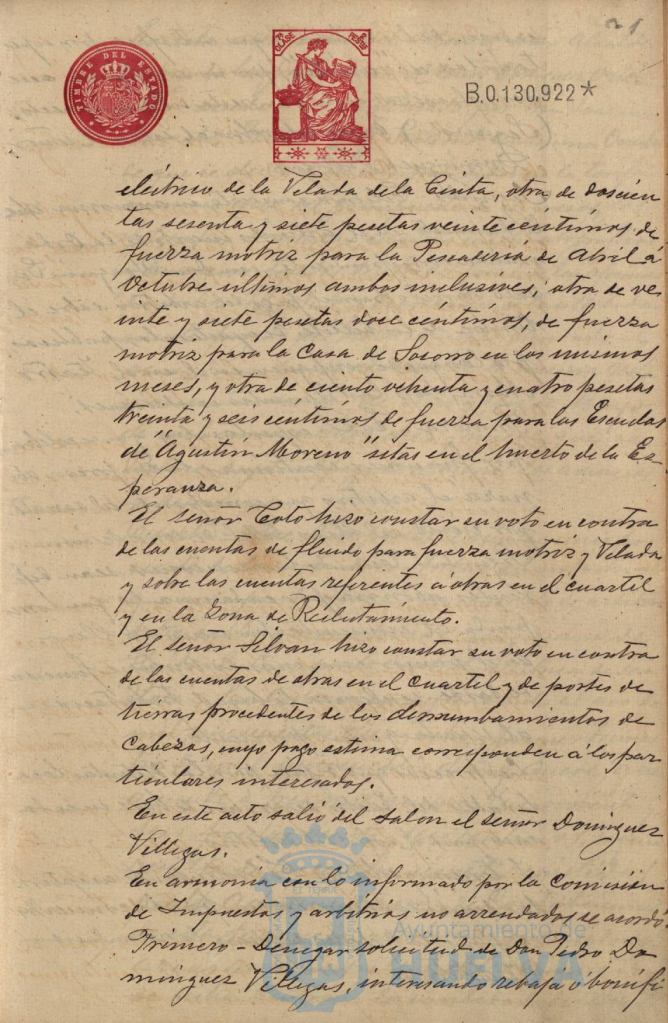 21
TIMBRE DEL ESTADO
CLASE
B.0.130,922*
eléctrico de la Velada de la Cinta, otra de doscien
tas sesenta y siete pesetas veinte céntimos de
fuerza motriz para la Pescadería de Abril á
Octubre últimos ambos inclusives; otra de ve
inte y siete pesetas doce céntimos, de fuerza
motriz para la Casa de Socorro en los mismos
meses, y otra de ciento ochenta y cuatro pesetas
treinta y seis céntimos de fuerza para las Escuelas
de "Agustín Moreno" sitas en el huerto de la Es
peranza.
El señor Coto hizo constar su voto en contra
de las cuentas de fluido para fuerza motriz y Velada
y sobre las cuentas referentes á obras en el cuartel
y en la Zona de Reclutamiento.
El señor Silvan hizo constar su voto en contra
de las cuentas de obras en el cuartel y de portes de
tierras procedentes de los derrumbamientos de
Cabezas, cuyo pago estima corresponden á los par
ticulares interesados.
En este acto salió del salon el señor Dominguez
Villegas.
En armonia con lo informado por la Comisión
de Impuestos y arbitrios no arrendados se acordó:
Primero - Denegar solicitud de Don Pedro Do
minguez Villegas, interesando rebaja ó bonifi
Ayuntamiento de
HUELVA